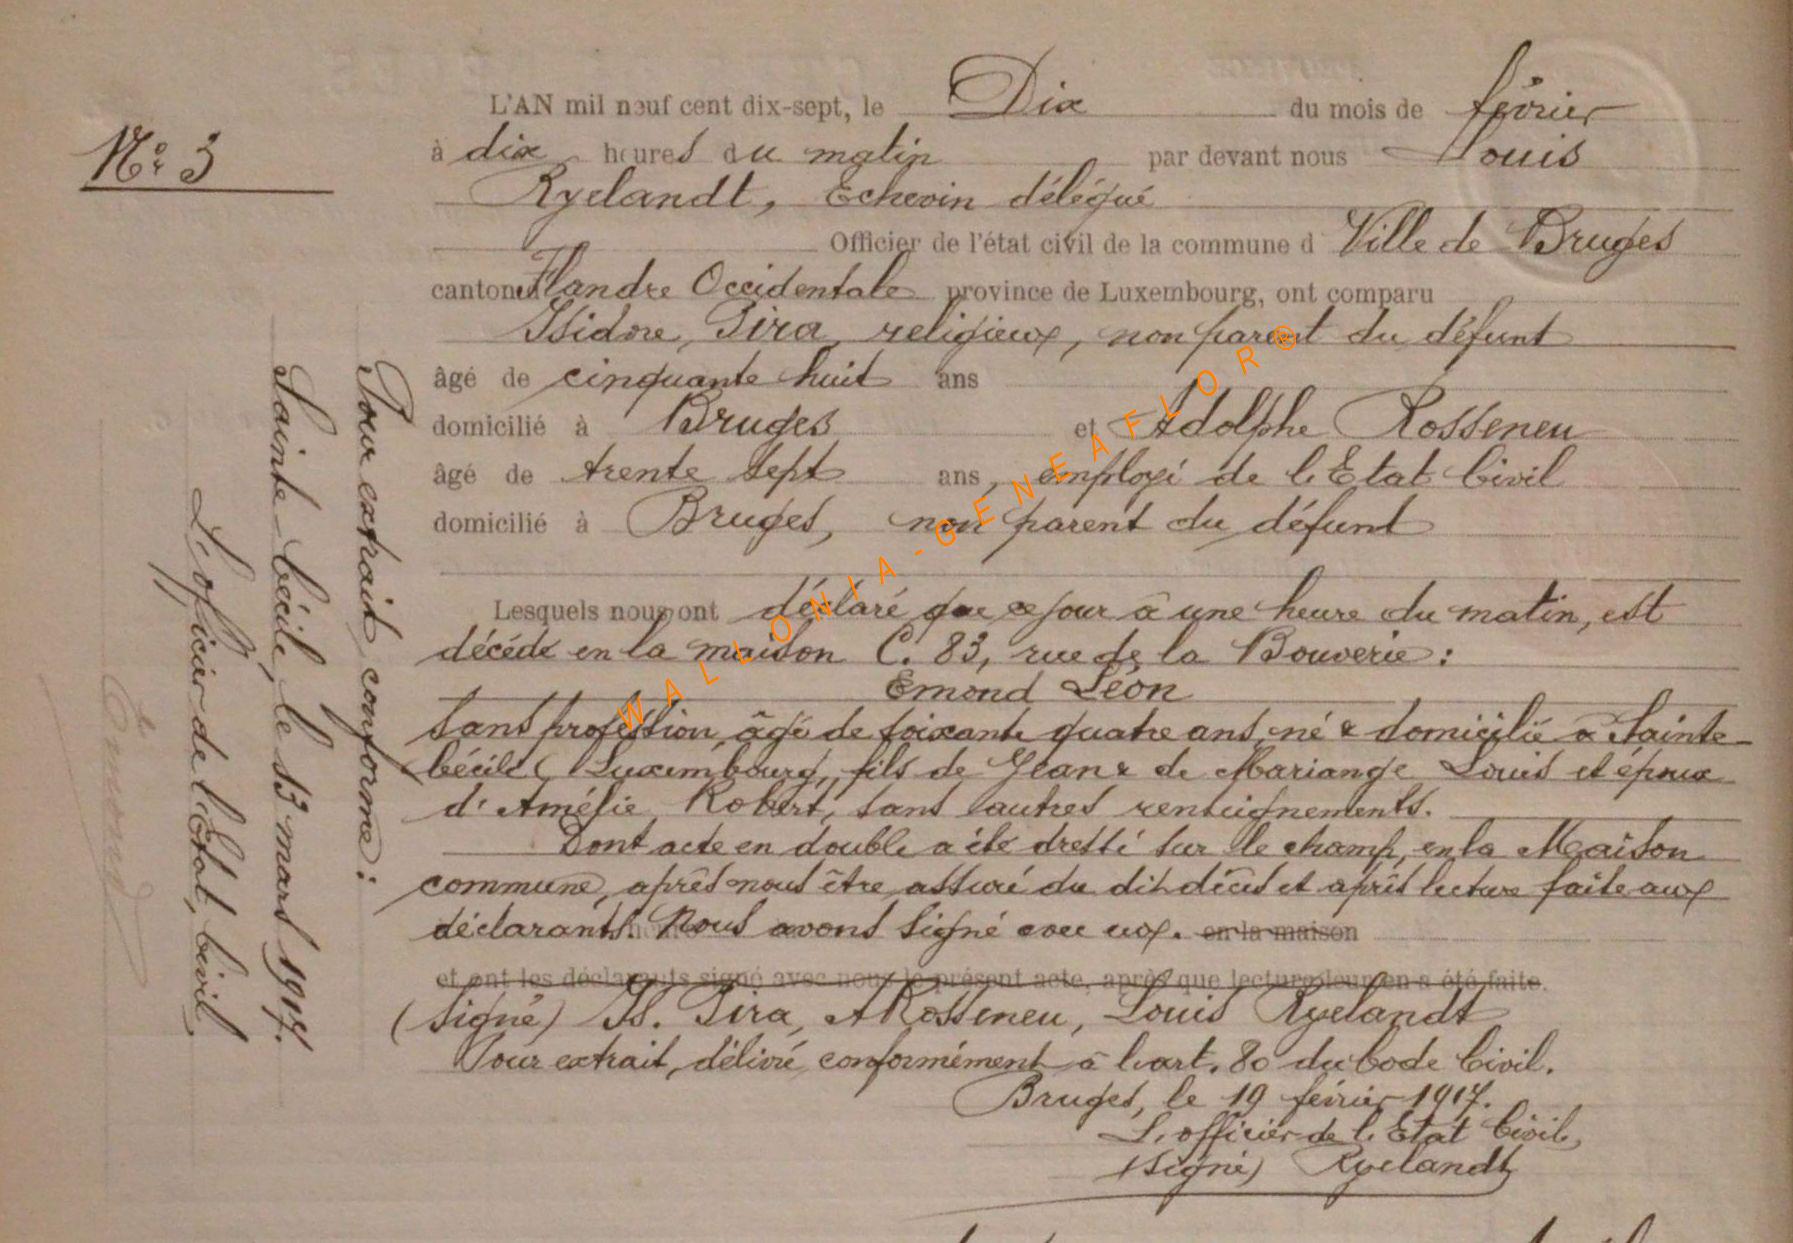 Nº. 3
L'AN mil neuf cent dix-sept, le Dix du mois de février
à dix heures du matin par devant nous Louis
Ryelandt, Echevin délégué
Officier de l'état civil de la commune d Ville de Bruges
canton Flandre Occidentale province de Luxembourg, ont comparu
Isidore, Pira, religieux, non parent du défunt
âgé de cinquante huit ans
domicilié à Bruges et Adolphe Rosseneu
âgé de trente sept ans, employé de l'Etat Civil
domicilié à Bruges, non parent du défunt
Lesquels nous ont déclaré que ce jour à une heure du matin, est
décédé en la maison C. 83, rue de la Bouverie:
Emond Léon
sans profession, âgé de soixante quatre ans, né & domicilié à Sainte
Cécile (Luxembourg), fils de Jean & de Mariange Louis et époux
d'Amélie Robert, sans autres renseignements.
Dont acte en double a été dressé sur le champ, en la Maison
commune, après nous être assuré du dit décès et après lecture faite aux
déclarants. Nous avons signé avec eux. en la maison
et ont les déclarants signé avec nous le présent acte, après que lecture leur en a été faite.
(signé) Is. Pira, A Rosseneu, Louis Ryelandt
Pour extrait, délivré conformément à l'art. 80 du Code Civil.
Bruges, le 19 février 1917.
L'officier de l'Etat Civil,
(signé) Ryelandt
Pour extrait conforme:
Sainte-Cécile, le 13 mars 1917.
L'officier de l'Etat, Civil,
Emond
WALLONIA-GENEAFLOR®